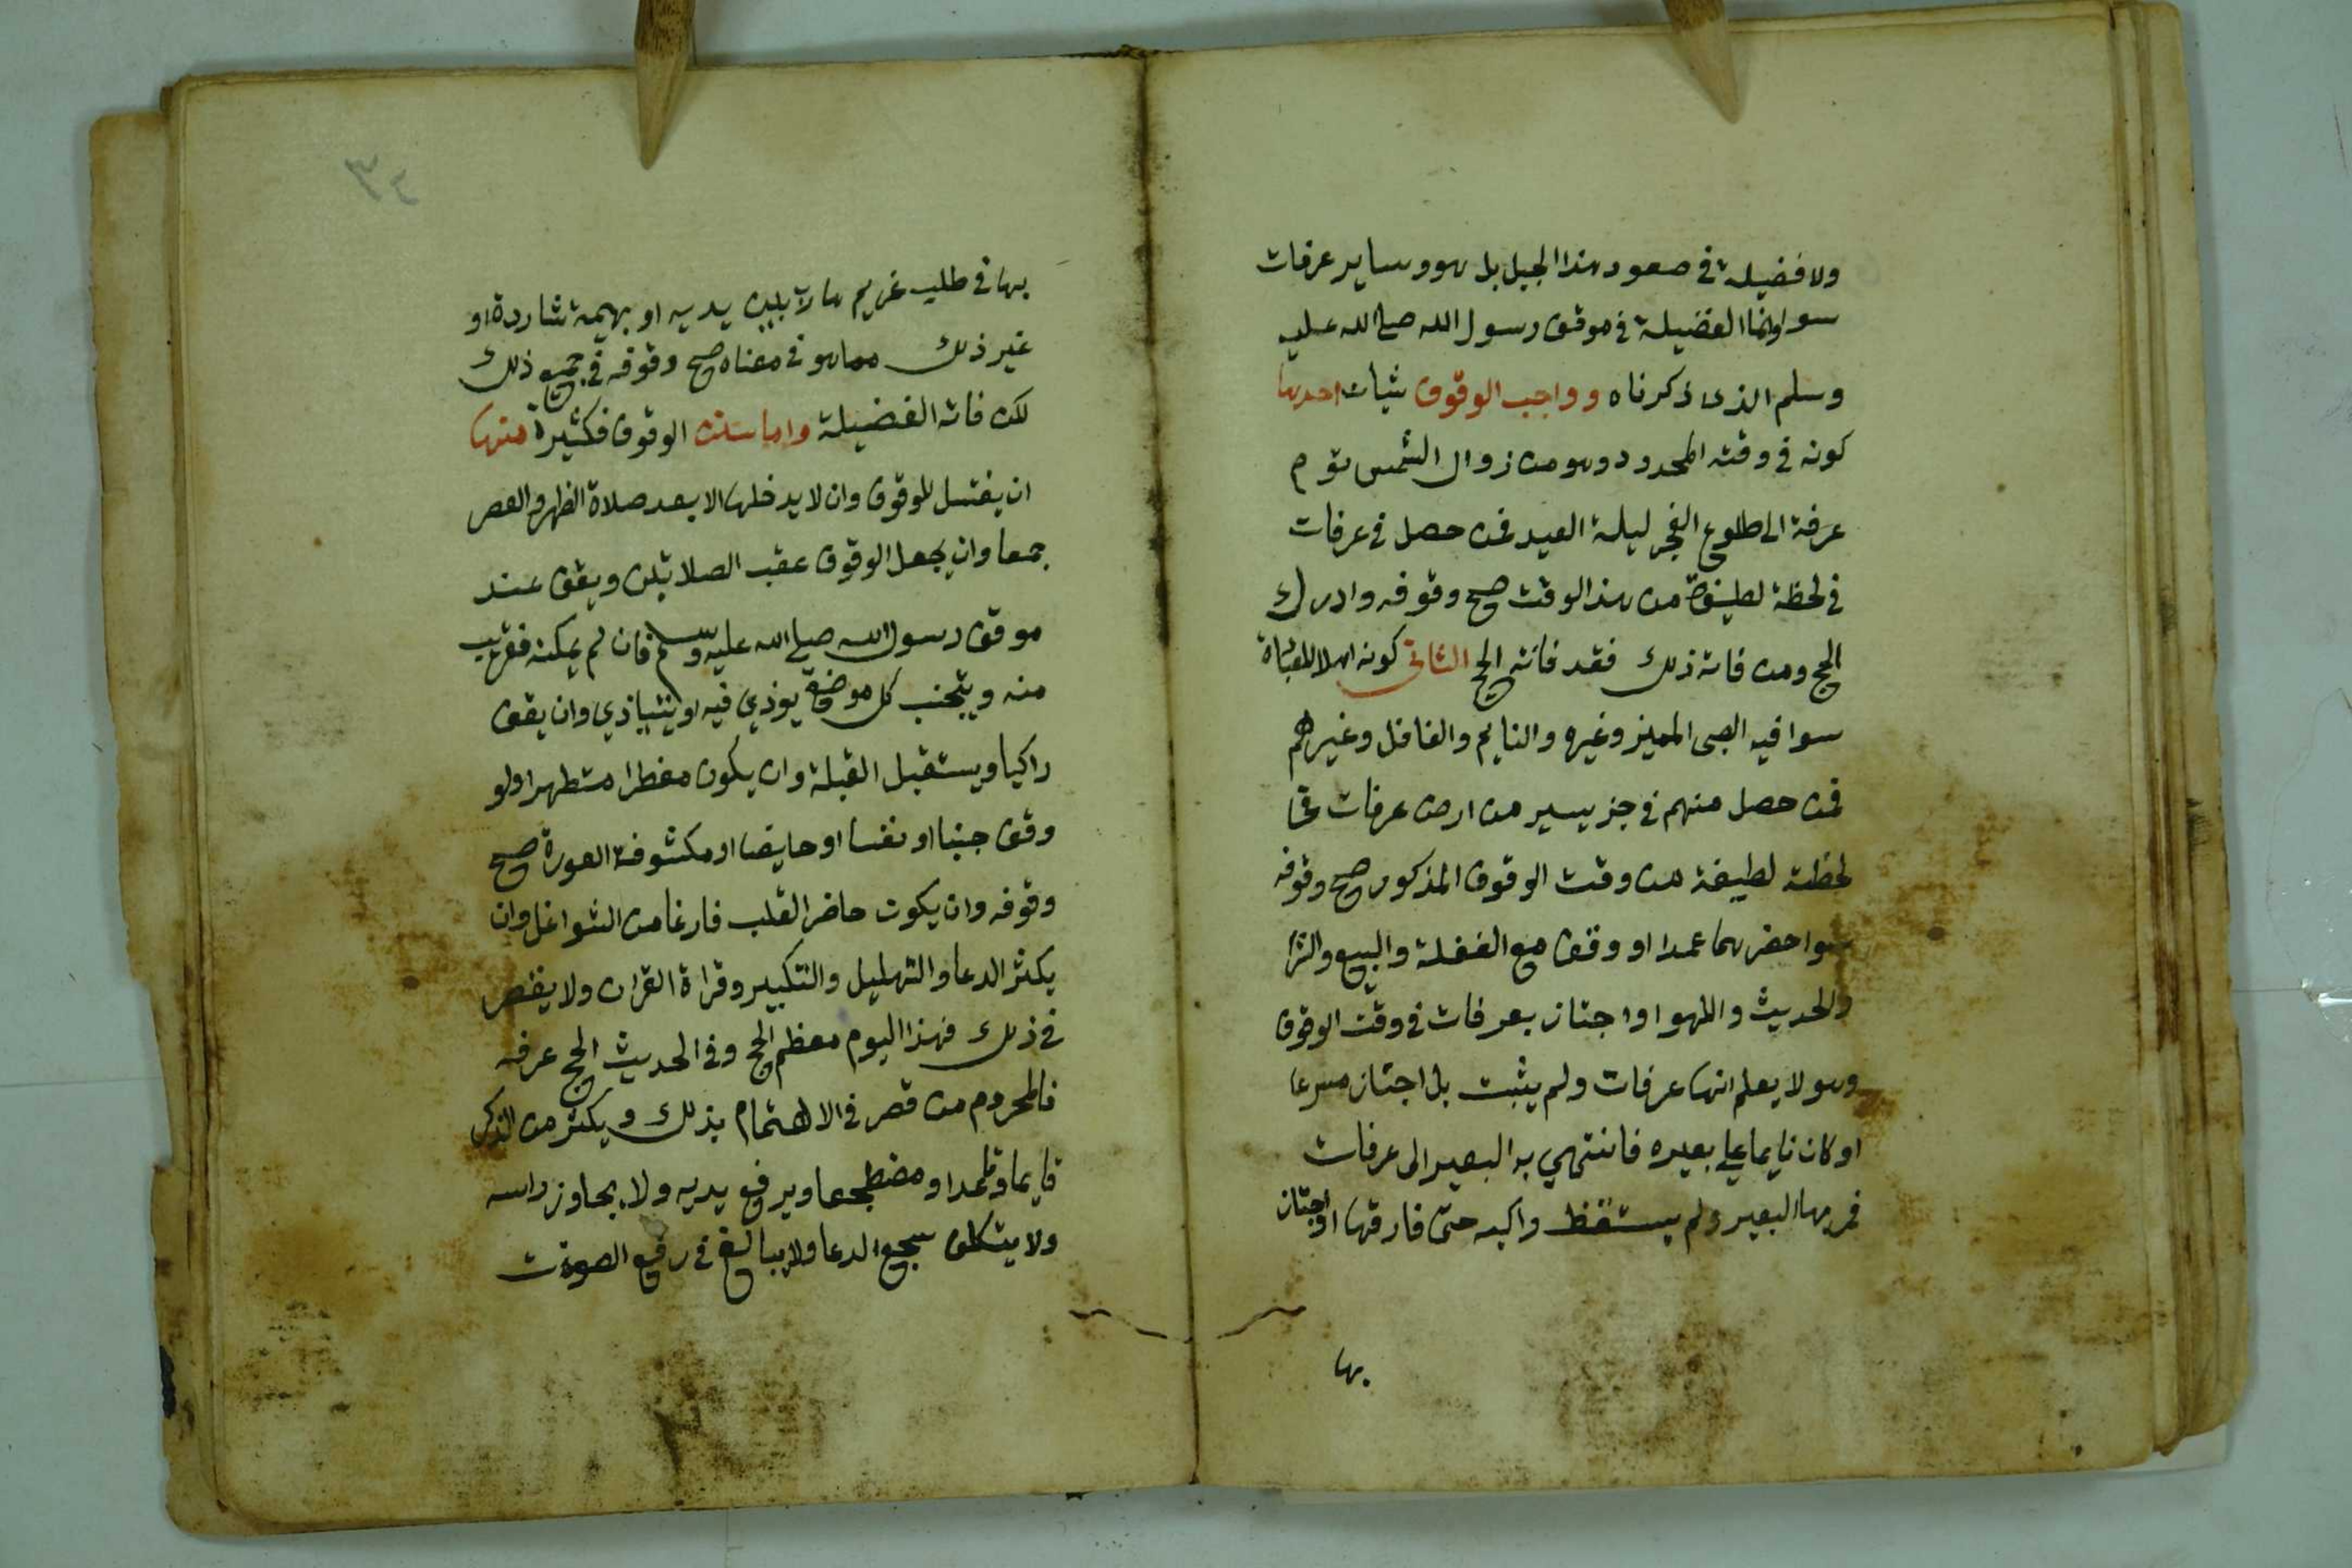 ولا فضيلة في صعود هذا الجبل بل هو وساير عرفات
سوا وانما الفضيلة في موقف رسول الله صلى الله عليه
وسلم الذي ذكرناه وواجب الوقوف شيان احدها
كونه في وقته المحدود وهو من زوال الشمس يوم
عرفة الى طلوع الفجر ليلة العيد فمن حصل في عرفات
في لحظة لطيفة من هذا الوقت صح وقوفه وادرك
الحج ومن فاته ذلك فقد فاته الحج الثاني كونه اهلا للعبادة
سوا فيه الصبي المميز وغيره والنايم والغافل وغيرهم
فمن حصل منهم في جز يسير من ارض عرفات في
لحظة لطيفة من وقت الوقوف المذكور صح وقوفه
سوا حضرها عمدا او وقف مع الغفلة والبيع والشرا
والحديث واللهو او اجتاز بعرفات في وقت الوقوف
وهو لا يعلم انها عرفات ولم يثبت بل اجتاز مسرعا
او كان نايما على بعيره فانتهي به البعير الى عرفات
فمر بها البعير ولم يستقظ راكبه حتى فارقها او اجتاز
بها
٣٤
بها في طلب غريم هارب بين يديه او بهيمة شاردة او
غير ذلك مما هو في معناه صح وقوفه في جميع ذلك
لكن فاته الفضيلة واما سنن الوقوف فكثيرة منها
ان يغتسل للوقوف وان لا يدخلها الا بعد صلاة الظهر والعصر
جمعا وان يجعل الوقوف عقب الصلاتين ويقف عند
موقف رسول الله صلى الله عليه وسلم فان لم يمكنه فقريب
منه ويتجنب كل موضع يوذي فيه او يتاذي وان يقف
راكبا ويستقبل القبلة وان يكون مفطرا متطهرا ولو
وقف جنبا او نفسا او حايضا او مكشوفة العورة صح
وقوفه وان يكون حاضر القلب فارغا من الشواغل وان
يكثر الدعا والتهليل والتكبير وقراة القران ولا يقصر
في ذلك فهذا اليوم معظم الحج وفي الحديث الحج عرفه
فالمحروم من قصر في الاهتمام بذلك ويكثر من الذكر
قايما وقاعدا ومضطجعا ويرفع يديه ولا يجاوز راسه
ولا يتكلف سجع الدعا ولا يبالغ في رفع الصوت